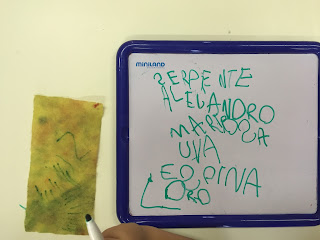 miniland
SERPENTE
ALEUANDRO
MARIPOSA
UVA
ESPINA
LORO